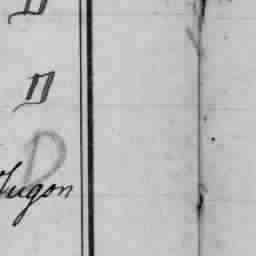 D
D
D
Jugon